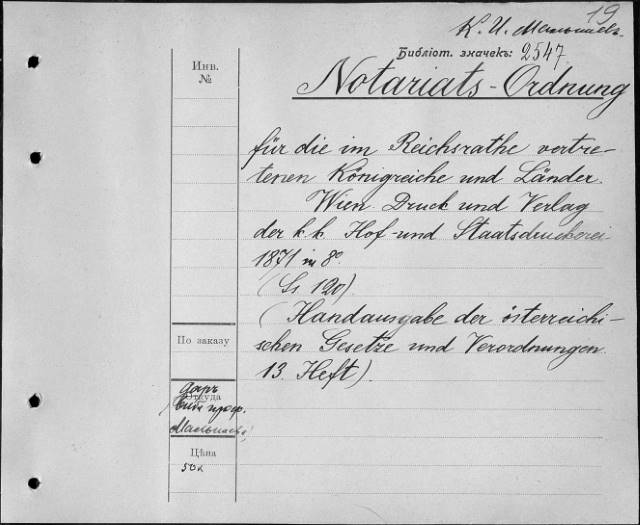 19
К. И. Малышевъ.
Библіот. значекъ: 2547.
Notariats-Ordnung
für die im Reichsrathe vertre-
tenen Königreiche und Länder.
Wien. Druck und Verlag
der k. k. Hof- und Staatsdruckerei
1871 in 8º.
(Ss 120)
(Handausgabe der österreichi-
schen Gesetze und Verordnungen.
13. Heft).
Инв.
№
По заказу
Даръ
Откуда
проф.
Малышева
Цѣна
50к